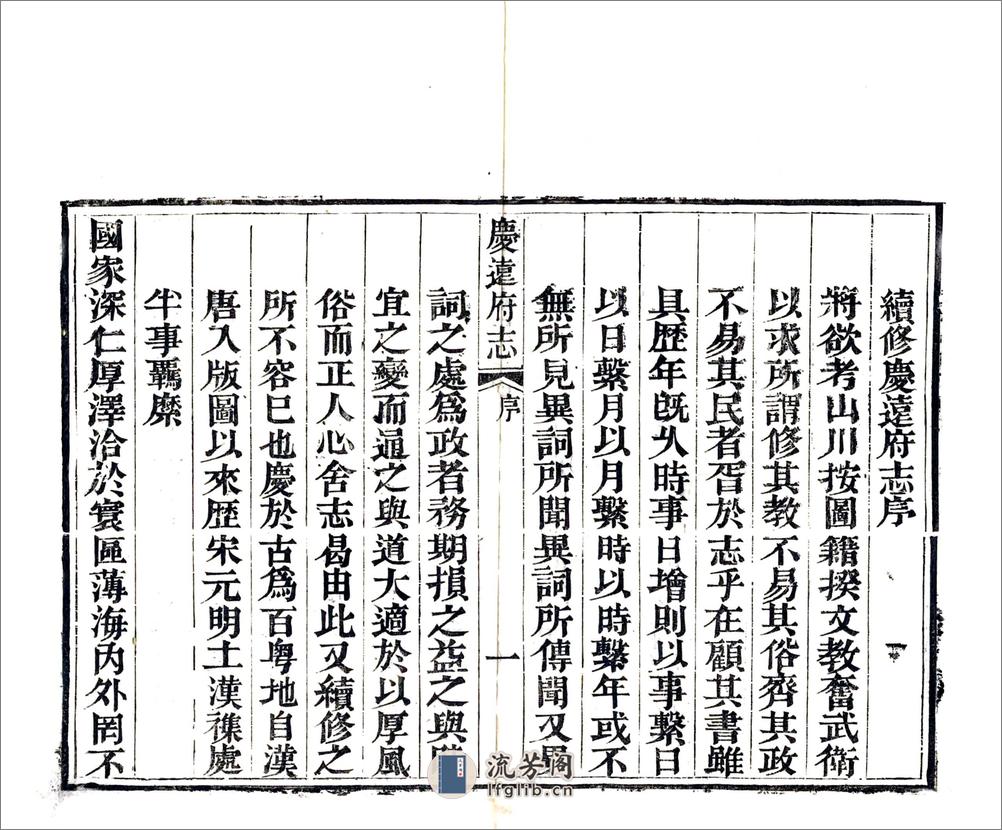 續修慶遠府志序
將欲考山川按圖籍揆文教奮武衛
以求所謂修其教不易其俗齊其政
不易其民者胥於志乎在顧其書雖
具歷年旣久時事日增則以事繫日
以日繫月以月繫時以時繫年或不
無所見異詞所聞異詞所傳聞又異
慶遠府志 序 一
詞之處爲政者務期損之益之與時
宜之變而通之與道大適於以厚風
俗而正人心舍志曷由此又續修之
所不容已也慶於古爲百粵地自漢
唐入版圖以來歷宋元明土漢襍處
半事羈縻
國家深仁厚澤洽於寰區薄海內外罔不
流芳阁
lfglib.cn